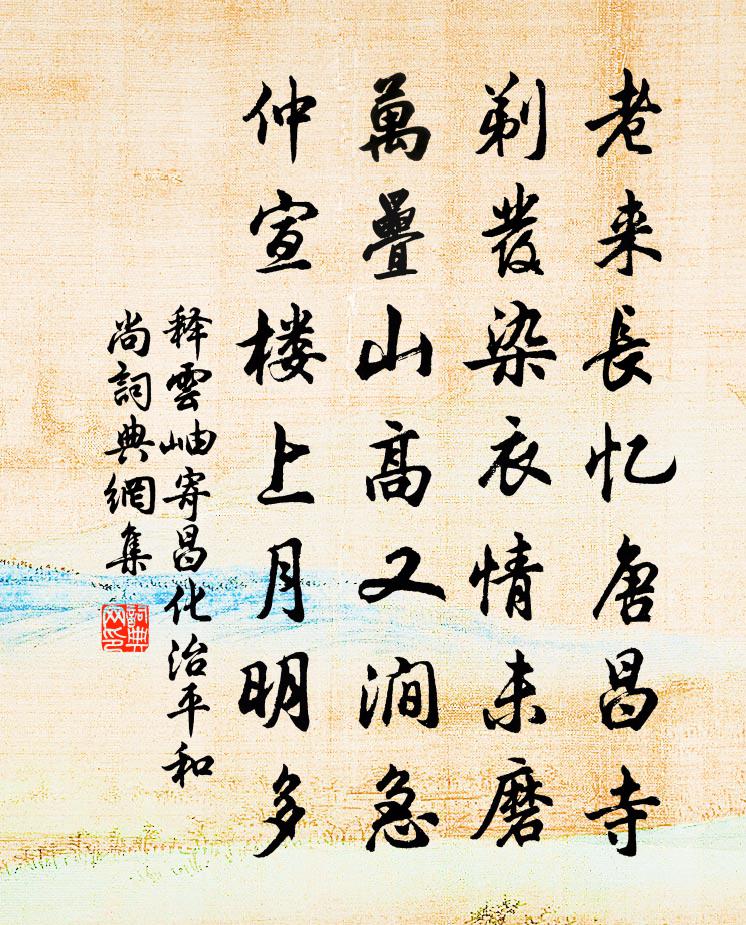 老来長忆唐昌寺
剃發染衣情未磨
萬疊山高又澗急
仲宣楼上月明多
释雲岫寄昌化治平和
尚詞典網集
詞典
网印